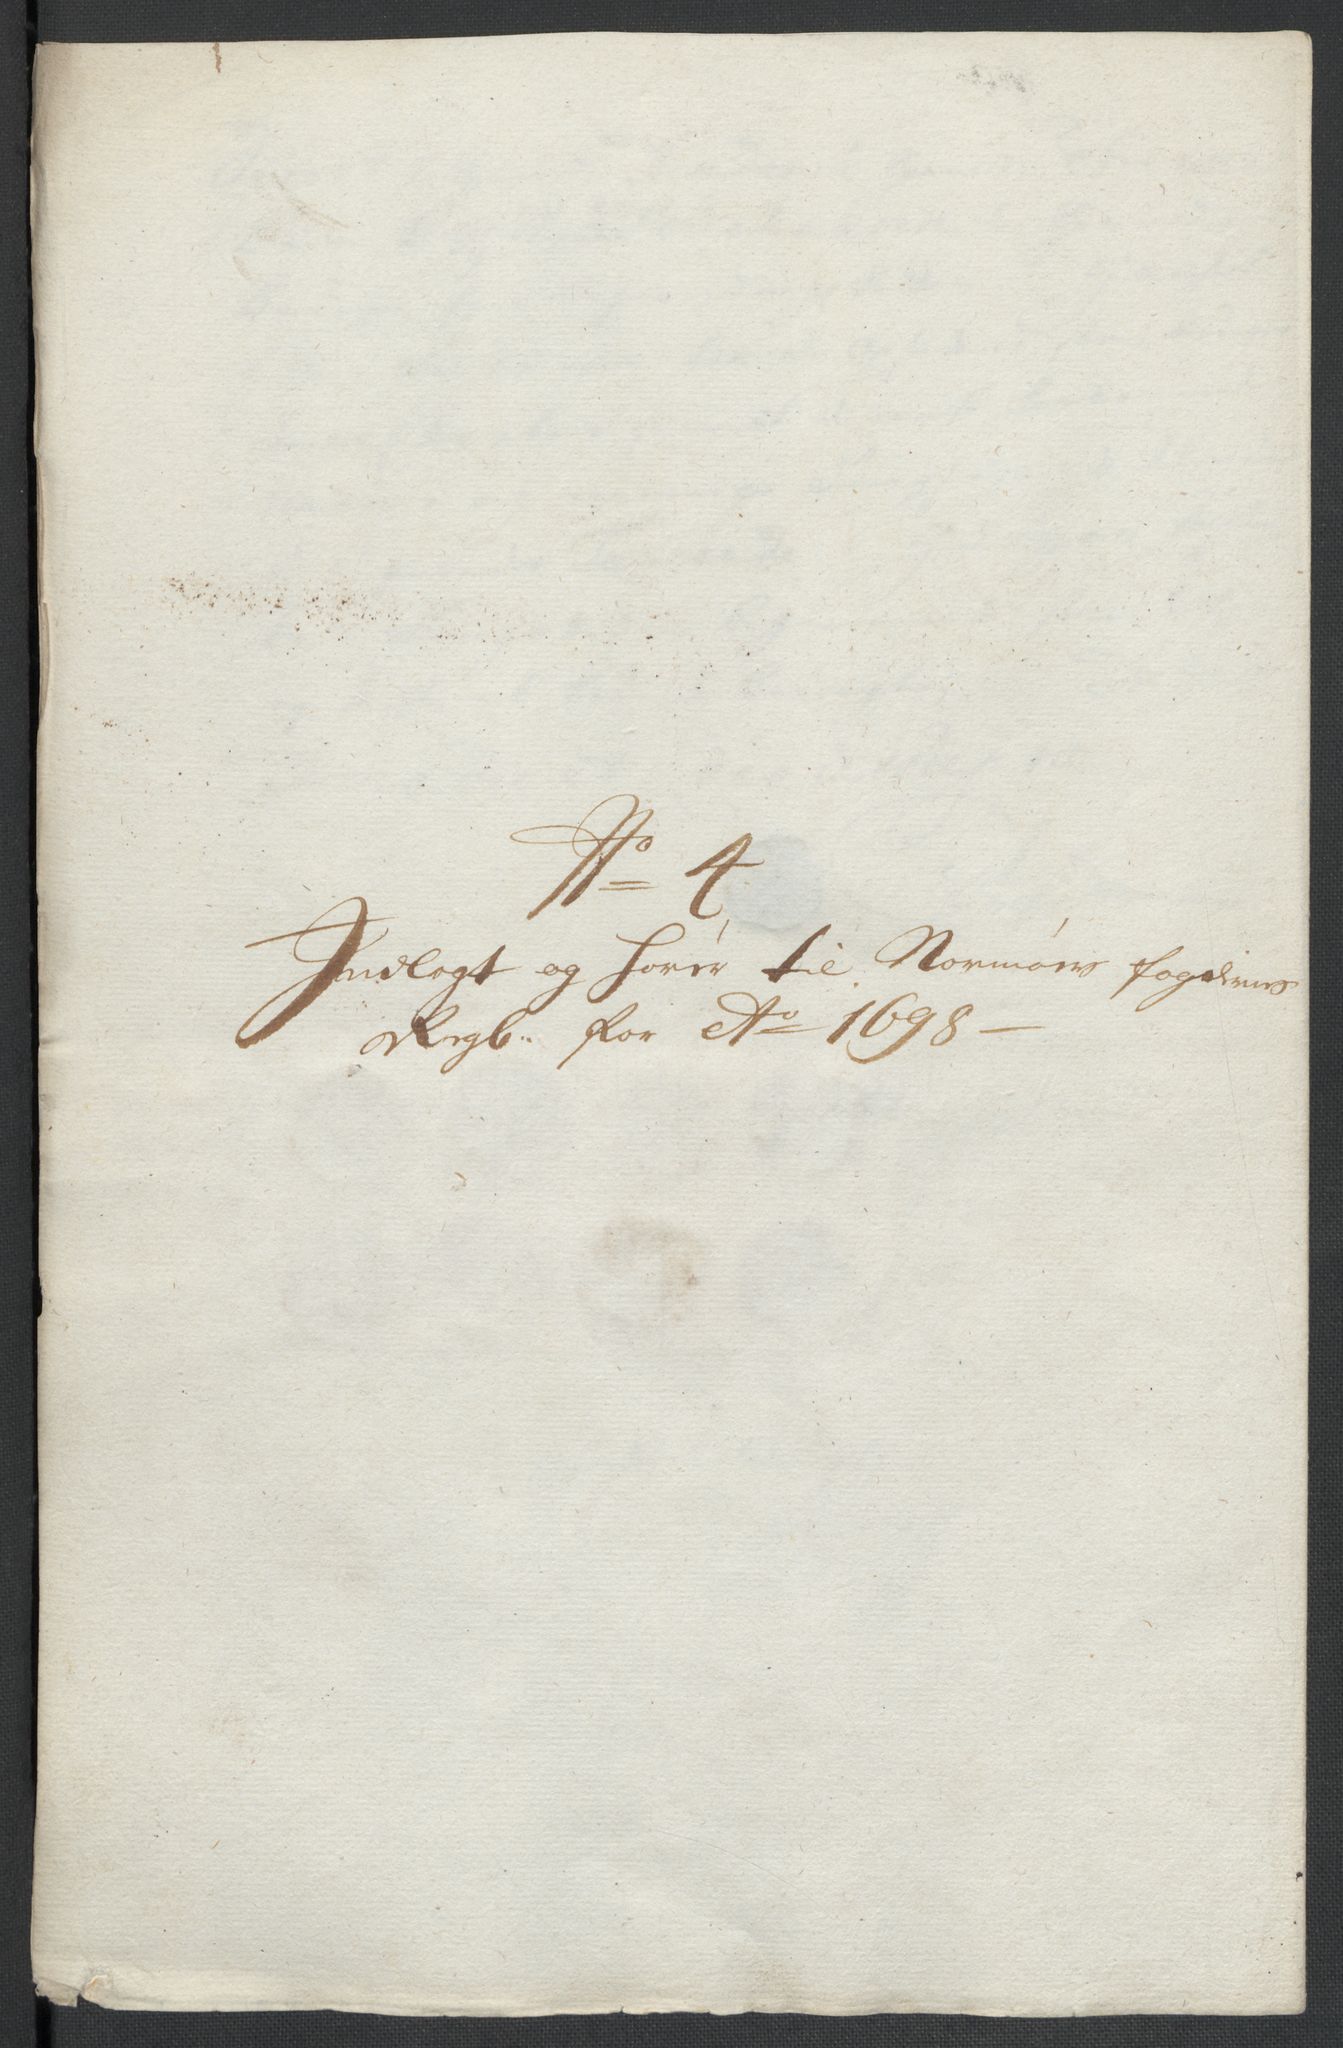 No 4
Indlagt og hører til Normørs fogderies
Regb: for Ao 1698 —